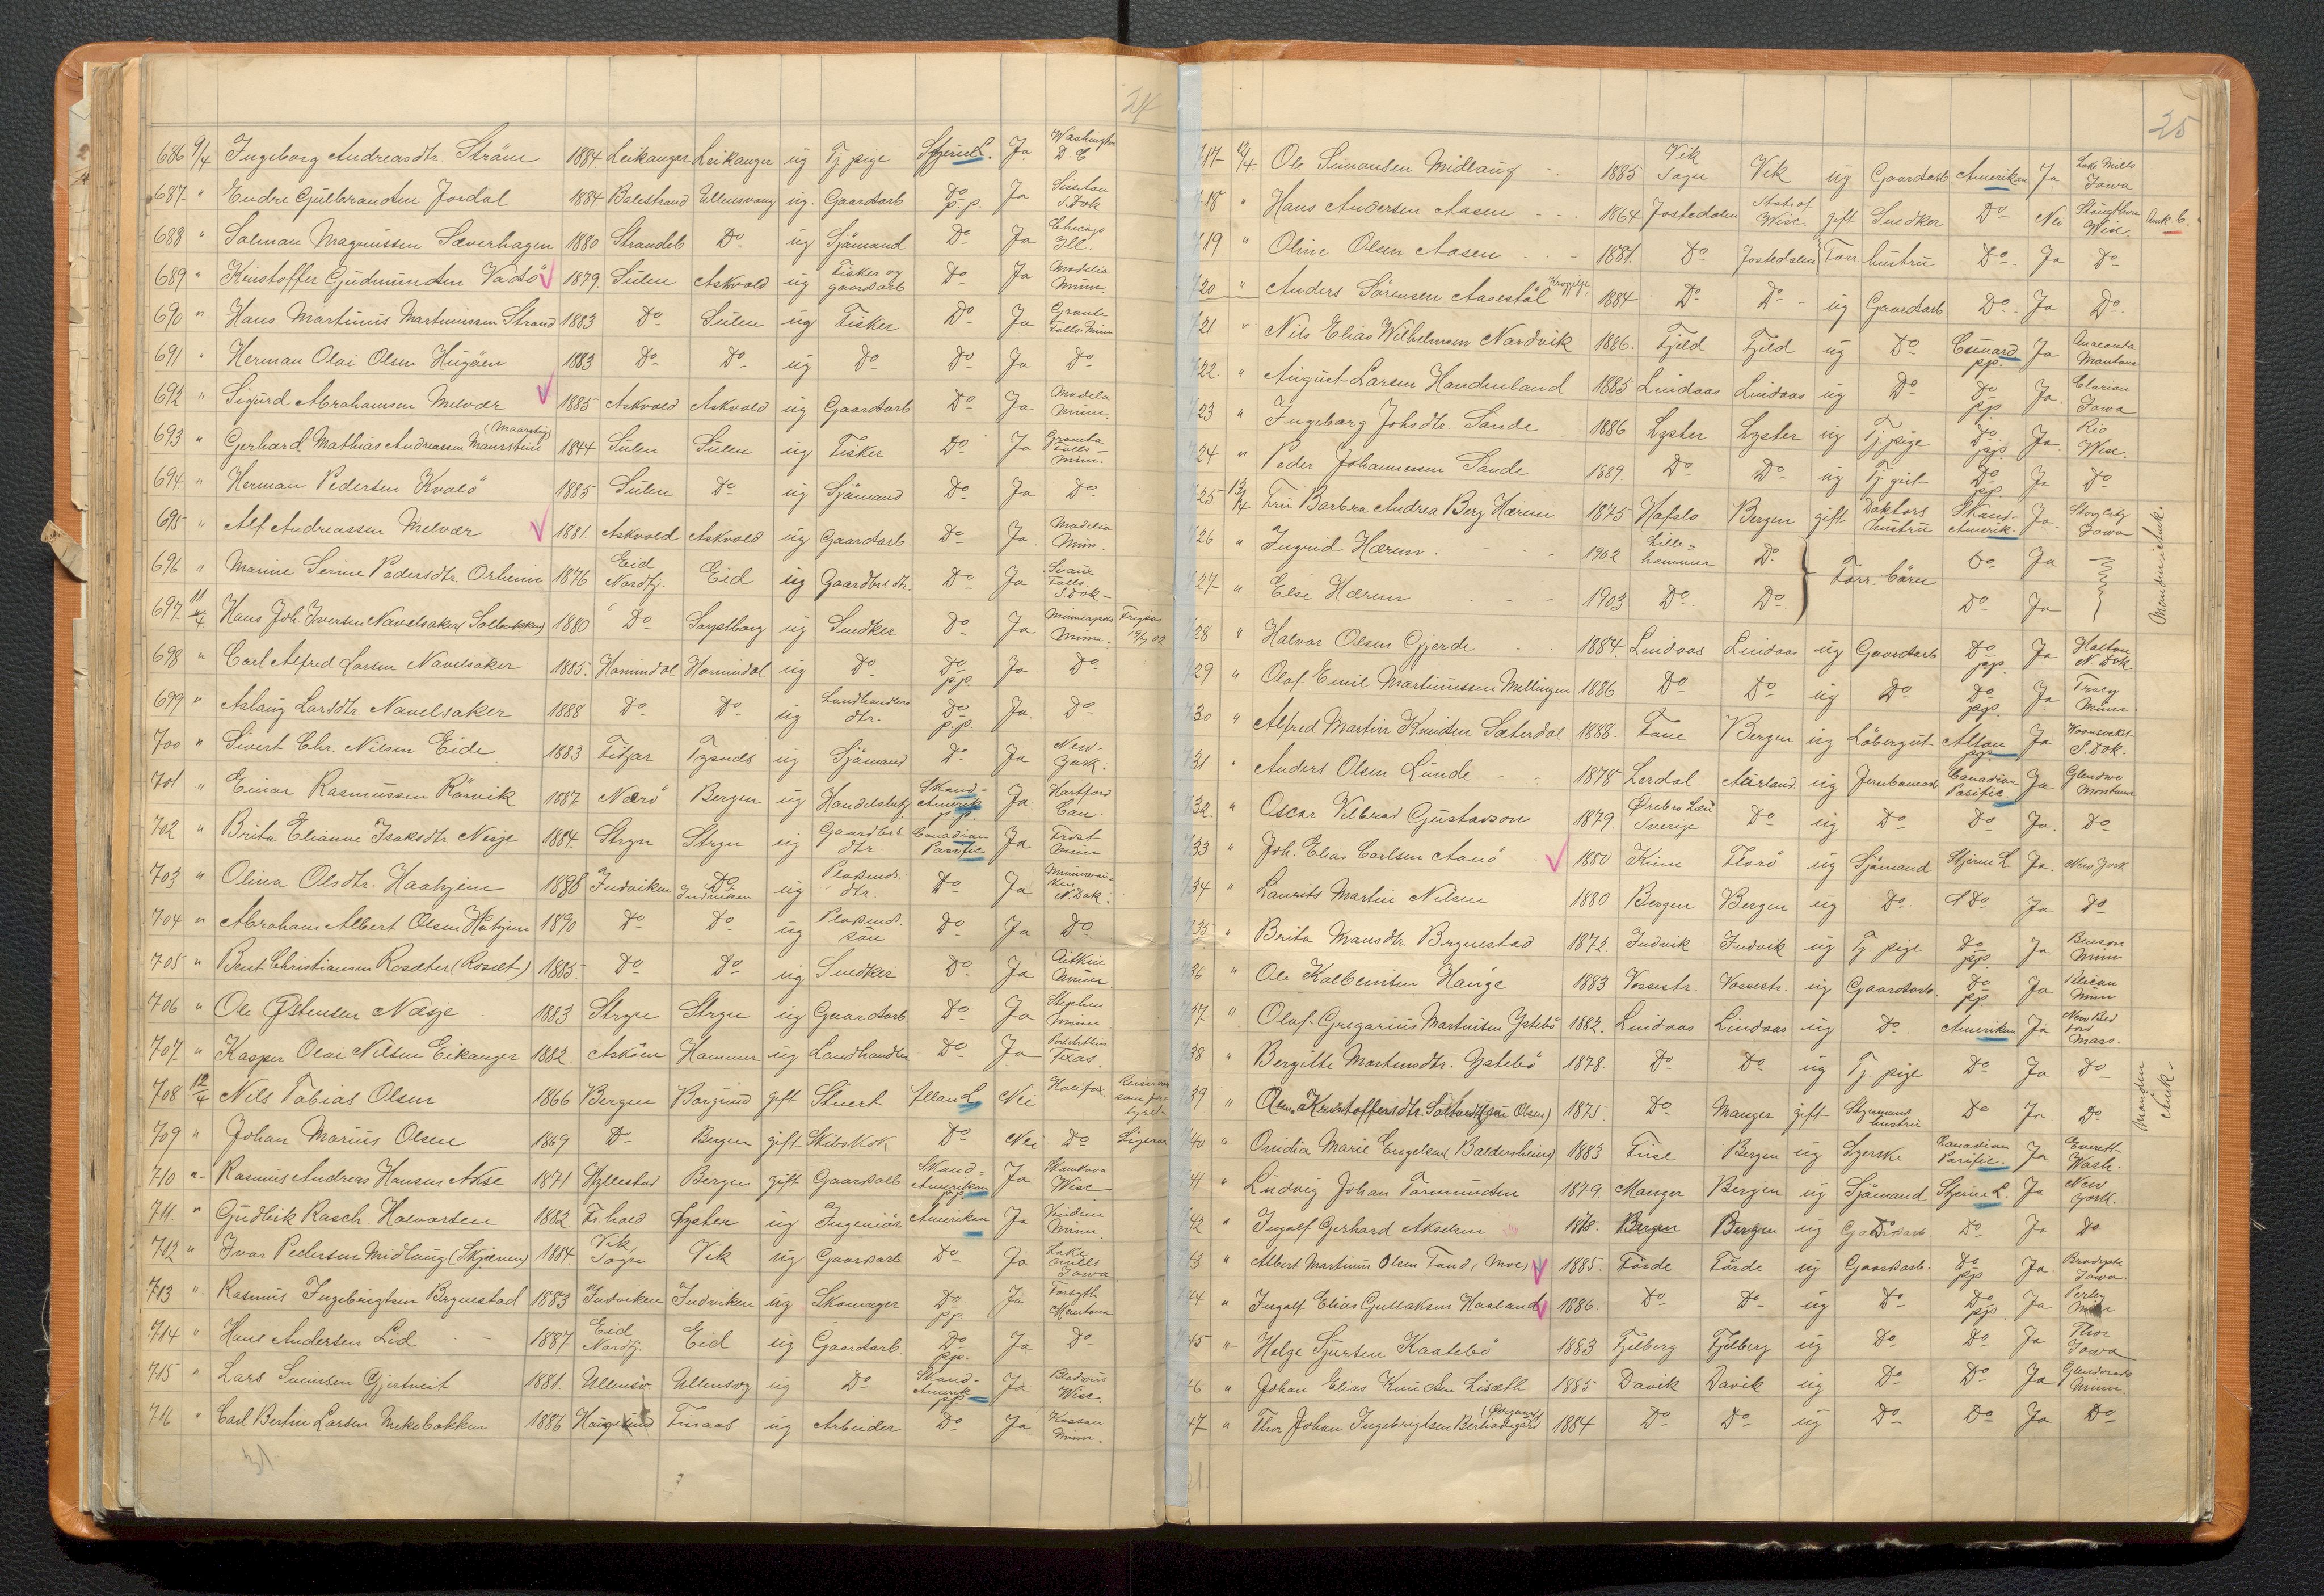 24
686 9/4 Ingeborg Andreasdtr. Ström 1884 Leikanger Leikanger ug Tj pige Stjerne L. Ja Washington D. C
687 " Endre Gulbrandsen Jordal 1884 Balestrand Ullensvang ug. Gaardarb Do p.p. Ja Sisseton S Dok
688 " Salman Magnussen Sæverhagen 1880 Strandeb Do ug Sjömand Do Ja Chicago Ill.
689 " Kristoffer Gudmundsen Vadsö 1879. Sulen Askvold ug Fisker og gaardarb Do Ja Madelia Minn.
690 " Hans Martinus Martinussen Strand 1883 Do Sulen ug Fisker Do Ja Granite Falls Minn
691 " Herman Olai Olsen Hugöen 1883 Do Do ug Do Do Ja Do
692 " Sigurd Abrahamsen Melvær 1885 Askvold Askvold ug Gaardarb Do Ja Madela Minn.
693 " Gerhard Mathias Andreassen 1844 Sulen Sulen ug Fisker Do Ja Falls Minn.
694 " Herman Pedersen Kvalö 1885 Sulen Do ug Sjömand Do Ja Do
695 " Alf Andreassen Melvær 1881. Askvold Askvold ug Gaardarb. Do Ja Madelia Minn.
696 " Marine Serine Pedersdtr. Orheim 1876 Eid Nordfj. Eid ug Gaardbr dtr. Do Ja Falls S Dok
697 11/4 Hans Joh. Iversen Navelsaker 1880 Do Sarpsborg ug Snedker Do Ja Minneapolis Minn.
698 " Carl Alfred Larsen Navelsaker 1885. Hornindal Hornindal ug Do Do p.p. Ja Do
699 " Aslaug Larsdtr. Navelsaker 1888 Do Do ug Landhandlers dtr. Do p.p. Ja Do
700 " Sivert Chr. Nilsen Eide 1883 Fitjar Tysnes ug Sjömand Do Ja New-York.
701 " Einar Rasmussen Rörvik 1887 Nærö Bergen ug Handelsbetj Skand-Amerik p.p. Ja Hartford Con.
702 " Brita Elianne Isaksdtr Nesje 1884. Stryn Stryn ug Gaardbr dtr. Canadian Pacific Ja Frost Minn
703 " Olina Olsdtr. Haahjem 1888 Indviken Do Indviken ug Pladsmds. dtr. Do Ja N. Dak.
704 " Abraham Albert Olsen Håhjem 1890 Do Do ug Pladsmd. sön Do Ja Do
705 " Bent Christiansen Rosæter (Rosæt) 1885. Do Do ug Snedker Do Ja Aitkin Minn.
706 " Ole Østensen Næsje 1883 Stryn Stryn ug Gaardarb. Do Ja Stephen Minn
707 " Kasper Olai Nilsen Eikanger 1882. Asköen Hammer ug Landhandler Do Ja Texas
708 12/4 Nils Tobias Olsen 1866 Bergen Borgund gift Stuert Allan L Nei Halifax
709 " Johan Marius Olsen 1869 Do Bergen gift Skibskok Do Nei Do
710 " Rasmus Andreas Hansen Akse 1871 Hyllestad Bergen gift Gaardarb Skand-Amerikan p.p. Ja Wisc
711. " Gudleik Rasch. Halvorsen 1882 Fr. hald Lyster ug Ingeniör Amerikan Ja Minn.
712 " Ivar Pedersen Midlang (Skjerven) 1884. Vik Sogn Vik ug Gaardarb Do Ja Lake Mills Iowa
713 " Rasmus Ingebrigtsen Brynestad 1883 Indviken Indviken ug Skomager Do pp. Ja Forsyth Montana
714 " Hans Andersen Lid 1887 Eid Nordfj. Eid ug Gaardarb. Do pp. Ja Do
715 " Lars Svendsen Gjertveit 1881. Ullensv. Ullensvg ug Do Skand-Amerik pp. Ja Wisc.
716 " Carl Bertin Larsen Mekebakken 1886 Haugesund Finaas ug Arbeider Do Ja Kasson Minn.
31
25
717 12/4 Ole Simonsen Midlang 1885 Vik Sogn Vik ug Gaardarb. Amerikan Ja Lake Mills Iowa
718 " Hans Andersen Aasen 1864 Jostedalen Stat of Wisc gift Snedker Do Nei Stoughton Wisc. Amk. C.
719 " Oline Olsen Aasen 1881. Do Jostedalen Forr. hustru Do Ja Do
720 " Anders Sörensen Aasestöl 1884 Do Do ug Gaardarb. Do Ja Do
721 " Nils Elias Wilhelmsen Nordvik 1886. Fjeld Fjeld ug Do Cunard pp. Ja Anaconda Montana
722. " August Larsen Hundeland 1885 Lindaas Lindaas ug Do Do pp Ja. Clarion Iowa
723 " Ingeborg Johsdtr. Sande 1886 Lyster Lyster ug Tj. pige Do pp. Ja. Rio Wisc.
724 " Peder Johannessen Sande 1889. Do Do ug Tj. gut Do pp. Ja Do
725 13/4 Fru Barbra Andrea Berg Hærem 1875 Hafslo Bergen gift Doktors hustru Skand-Amerik. Ja Story City Iowa
726 " Ingrid Hærem 1902 Lille=hammer Do Forr. börn Do Ja
727 " Else Hærem 1903 Do Do Do Ja
728 " Halvor Olsen Gjerde 1884. Lindaas Lindaas ug Gaardarb Do pp. Ja Hatton N. Dok
729 " Olaf Emil Martinussen Mellingen 1886 Do Do ug Do Do pp. Ja Tracy Minn.
730 " Alfred Martin Knudsen Sæterdal 1888. Fane Bergen ug Löbergut Allan pp. Ja Woonsocket S. Dok.
731 " Anders Olsen Lunde 1878 Lerdal Aurland. ug Jernbanearb Canadian Pasific Ja Montana
732. " Oscar Gustavson 1879. Ørebro Län Sverige Do ug Do Do Ja. Do
733 " Joh. Elias Carlsen Aanö 1880 Kinn Florö ug Sjömand Stjerne L. Ja. New York
734 " Laurits Martin Nilsen 1880 Bergen Bergen ug Do Do Ja Do
735 " Brita Mansdtr Brynestad 1872. Indvik Indvik ug Tj. pige Do pp. Ja Benson Minn
736 " Ole Kolbeinsen Hauge 1883 Vossestr. Vossestr. ug Gaardarb. Do pp. Ja Minn
737 " Olaf Gregarius Martinsen Ystebö 1882. Lindaas Lindaas ug Do Amerikan Ja New Bedford Mass.
738 " Bergitte Martensdtr. Ystebö 1878. Do Do ug Tj. pige Do Ja Do
739 " Kristoffersdtr. 1875 Do Manger gift Styrmands hustru Do Ja. Do
740 " Ovidia Marie Engelsen (Baldersheim) 1883 Fuse Bergen ug Syerske Canadian Pacific Ja Everett Wash.
741 " Ludvig Johan Tormundsen 1879. Manger Bergen ug Sjömand Stjerne L. Ja New York.
742 " Ingolf Gerhard Akselsen 1878. Bergen Bergen ug Do Ja Do
743 " Albert Martinus Olsen Tand (Moe) 1885. Förde Förde ug Gaardarb. Do pp Ja. Iowa.
744 " Ingolf Elias Gullaksen Haaland 1886. Do Do ug Do Do pp. Ja Perley Minn
745 " Helge Sjursen Kaatebö 1883 Fjelberg Fjelberg ug Do Do Ja Thor Iowa
746 " Johan Elias Knudsen Lisæth 1885 Davik Davik ug Do Do Ja Minn.
747 " Thor Johan Ingebrigtsen 1884 Do Do ug Do Do Ja Do